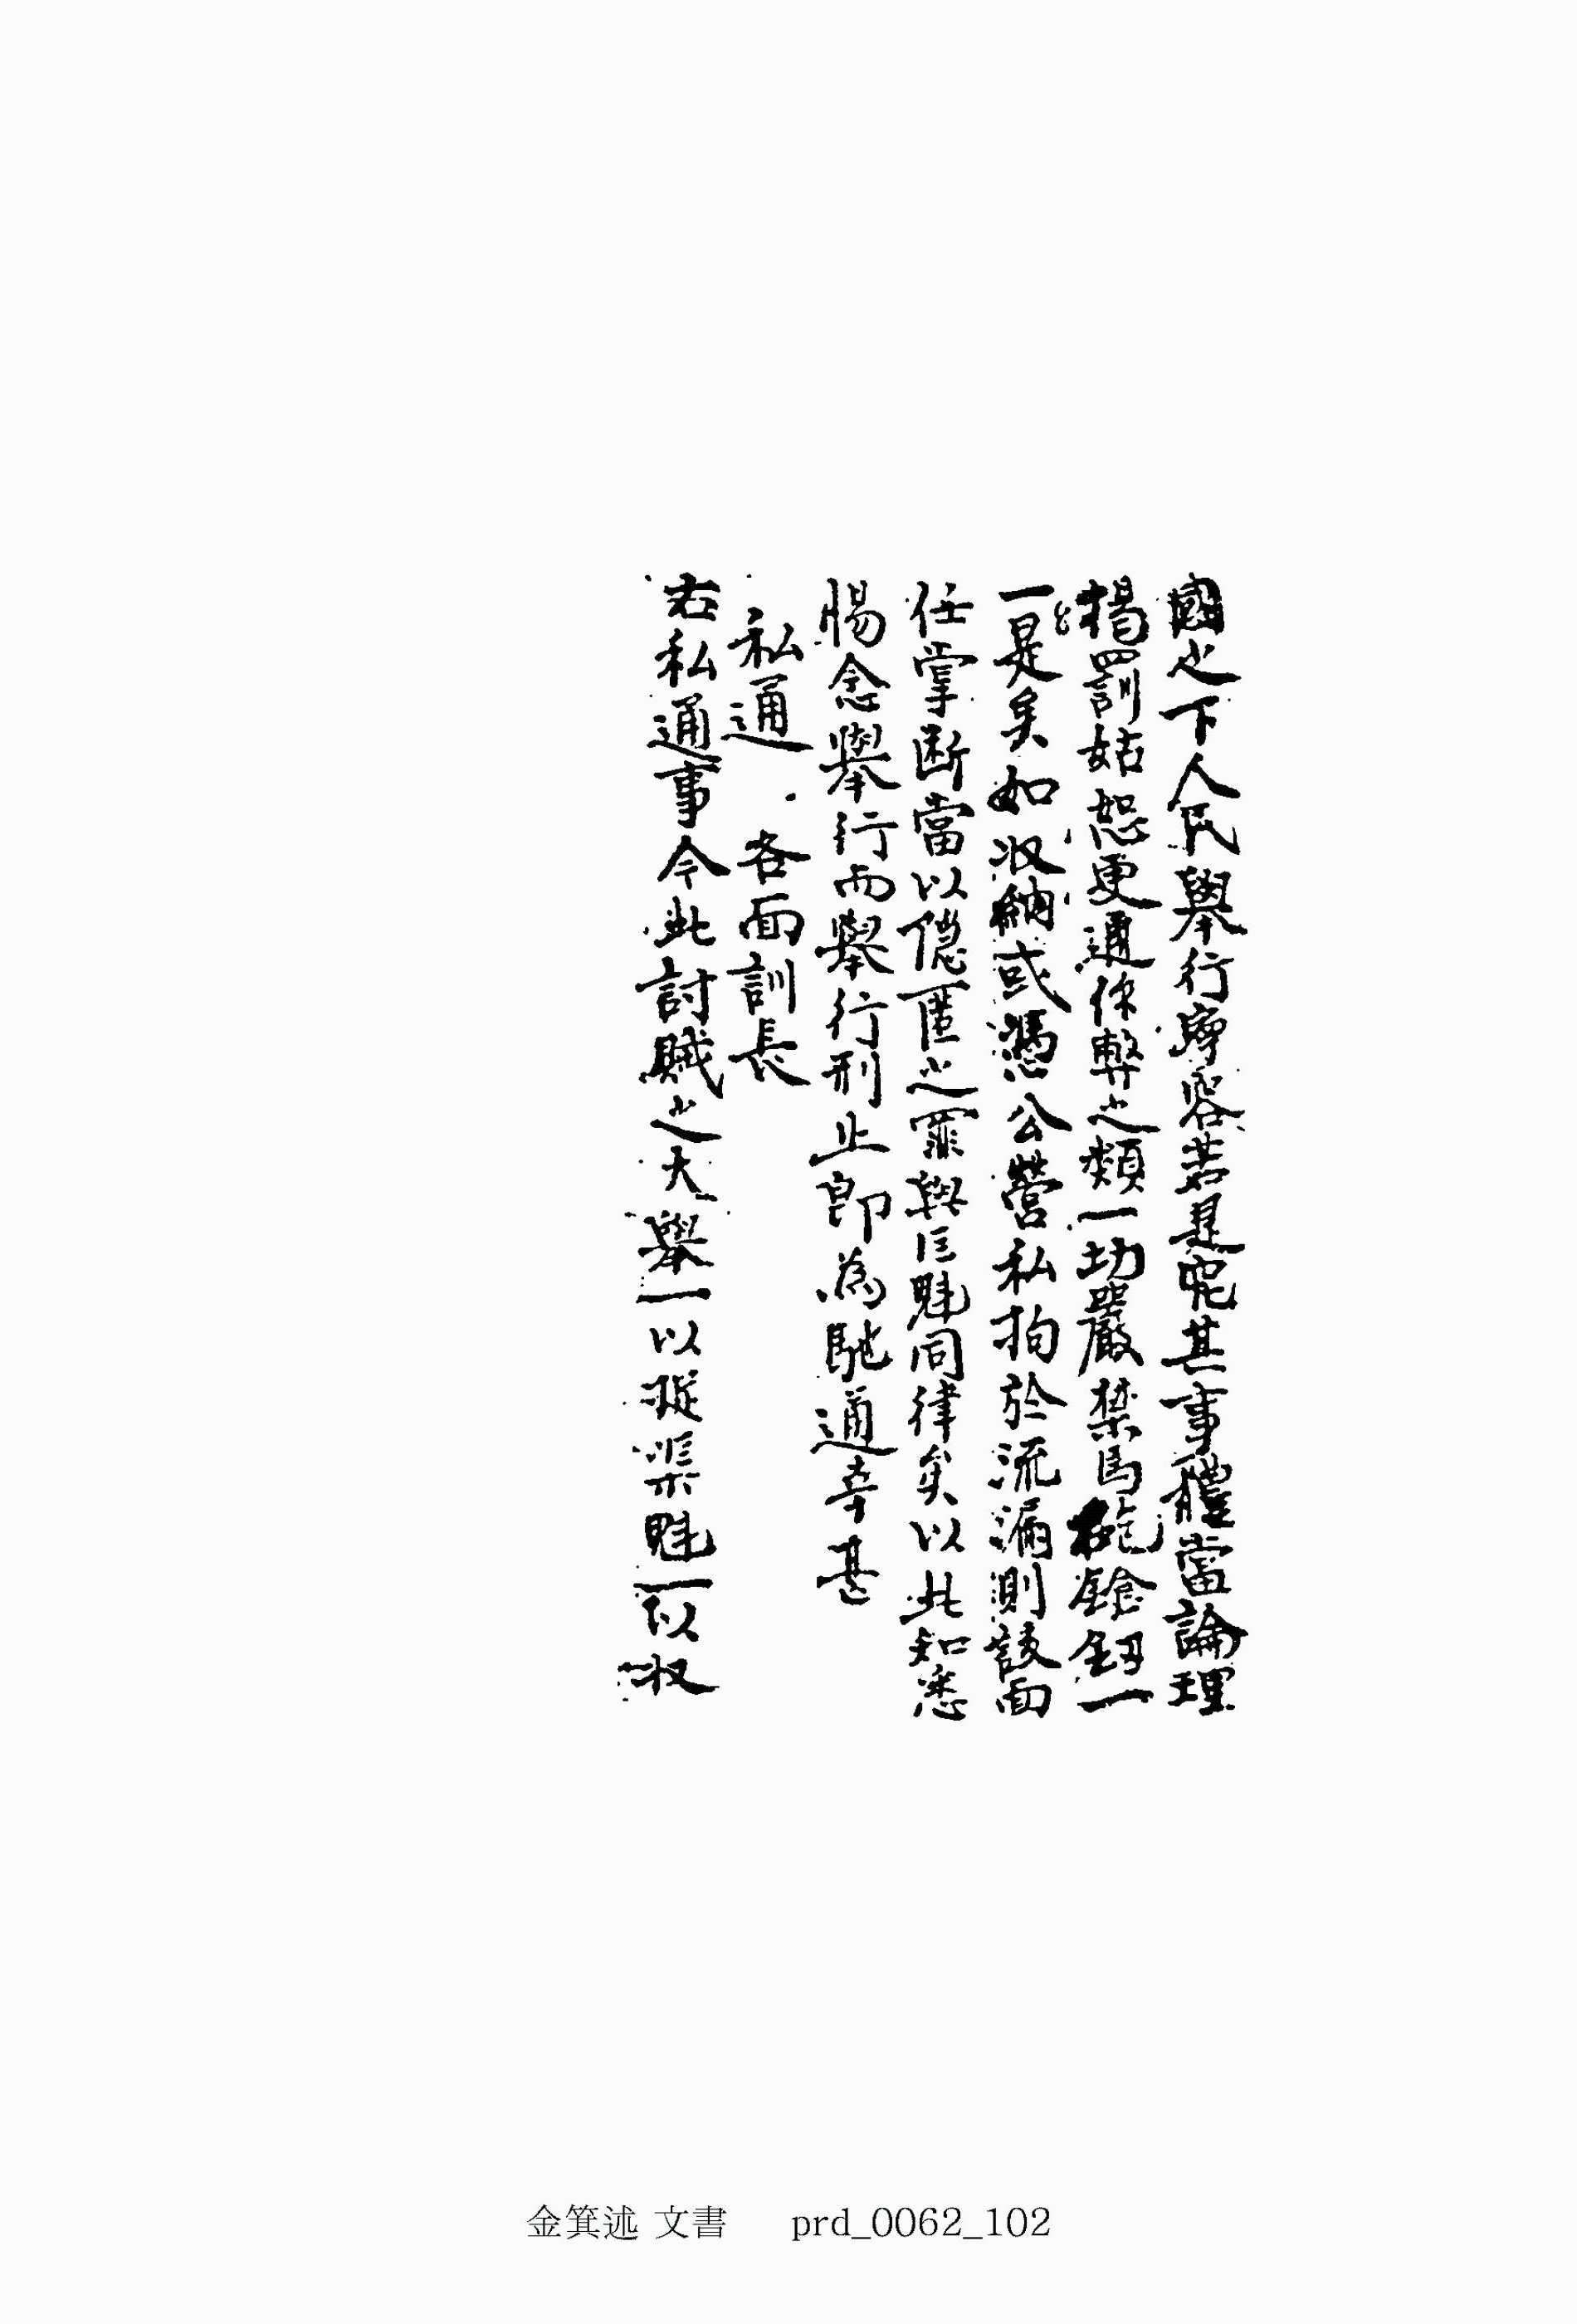 國之下人民擧行寧容若是呢其事體當論理
揭罰姑恕更通係弊之類一切嚴禁馬砲鎗釰一
一是矣如収納或憑公營私拘於流漏則該面
任掌斷當以隱匿之罪與巨魁同律矣以此知悉
惕念擧行而擧行形止卽為馳通幸甚
私通 各面訓長
右私通事今此討賊之大擧一以捉渠魁一以収
金箕述 文書 prd_0062_102